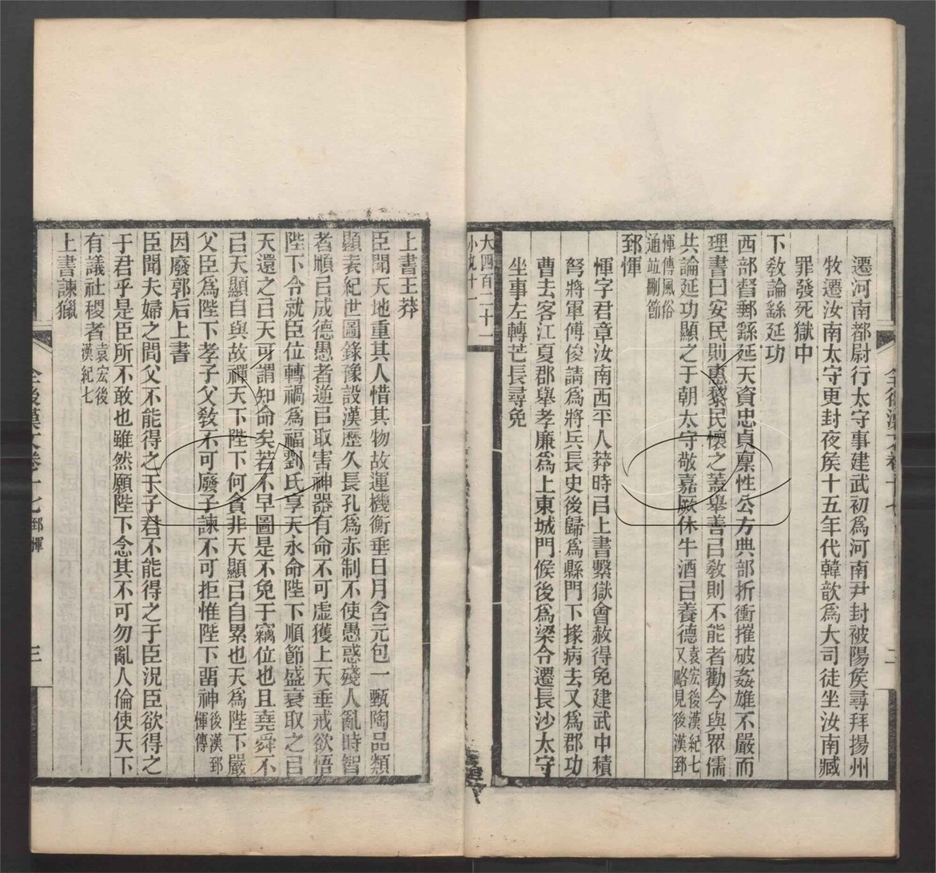 遷河南都尉行太守事建武初為河南尹封被陽矦尋拜揚州
牧遷汝南太守更封夜矦十五年代韓歆為大司徒坐汝南臧
罪發死獄中
下敎論繇延功
西部督郵繇延天資忠貞稟性公方典部折衝摧破姦雄不嚴而
理書曰安民則惠黎民懷之蓋舉善㠯敎則不能者勸今與眾儒
共論延功顯之于朝太守敬嘉厥休牛酒㠯養德袁宏後漢紀七又略見後漢郅
惲傳風俗通竝刪節
郅惲
惲字君章汝南西平人莽時㠯上書繫獄會赦得免建武中積
弩將軍傅俊請為將兵長史後歸為縣門下掾病去又為郡功
曹去客江夏郡舉孝廉為上東城門候後為梁令遷長沙太守
坐事左轉芒長尋免
大四百二十二
小九十一
全後漢文卷十七
二
上書王莽
臣聞天地重其人惜其物故運機衡垂日月含元包一甄陶品類
顯表紀世圖錄豫設漢歷久長孔為赤制不使愚惑殘人亂時智
者順㠯成德愚者逆㠯取害神器有命不可虛獲上天垂戒欲悟
陛下令就臣位轉禍為福劉氏享天永命陛下順節盛衰取之㠯
天還之㠯天可謂知命矣若不早圖是不免于竊位也且堯舜不
㠯天顯自與故禪天下陛下何貪非天顯㠯自累也天為陛下嚴
父臣為陛下孝子父敎不可廢子諫不可拒惟陛下畱神後漢郅惲傳
因廢郭后上書
臣聞夫婦之閒父不能得之于子君不能得之于臣況臣欲得之
于君乎是臣所不敢也雖然願陛下念其不可勿亂人倫使天下
有議社稷者袁宏後漢紀七
上書諫獵
全後漢文卷十七 郅惲
三